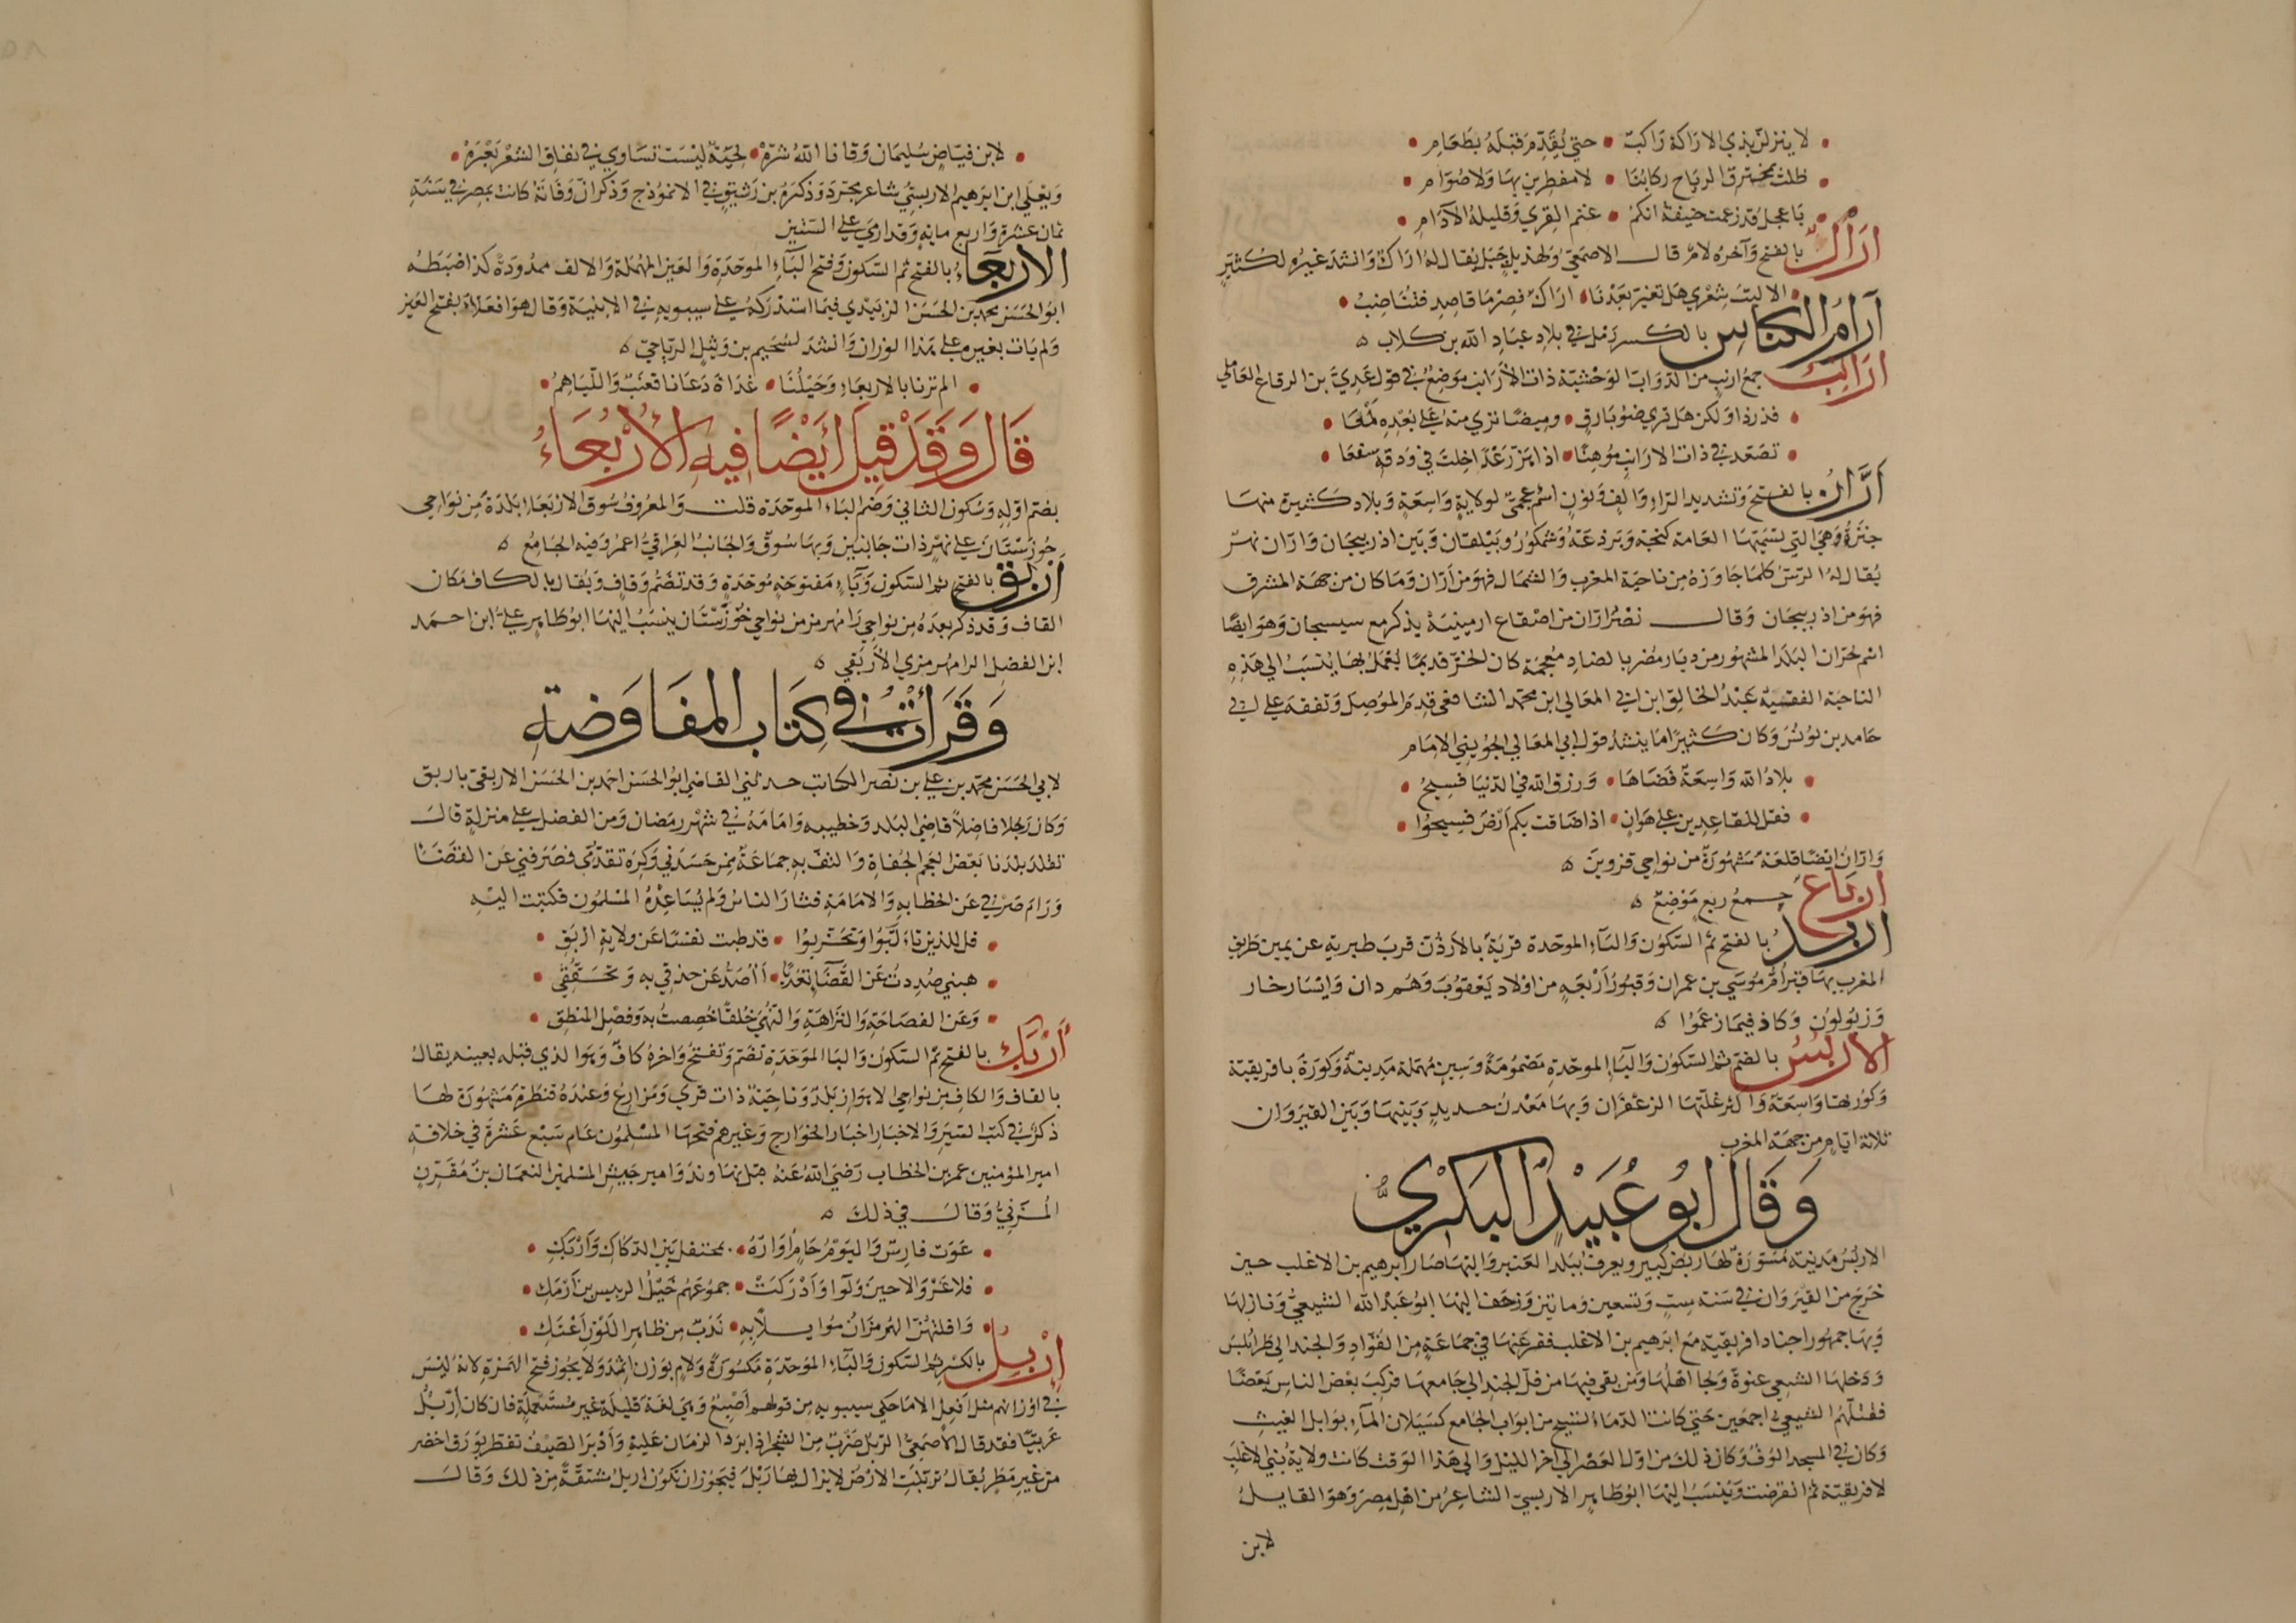 لا ينزلن بذي الاراكة راكب • حتى يقدم قبله بطعام •
ظلت بمخترق الرياح ركابنا • لا مفطرين بها ولا صوام •
يا عجل قد زعمت حنيفة انكم • عتم القرى وقليلة الآدام •
أرال بالفتح وآخره لام قال الاصمعي ولهذيل جبل يقال له اراك وانشد غيره لكثير
• الا ليت شعري هل تغير بعدنا • اراك فصرما قاصد فتناضب •
آرام الكناس بالكسر رمل في بلاد عباد الله بن كلاب ه
أرانب جمع ارنب من الدواب الوحشية ذات الأرانب موضع في قول عدي بن الرقاع العاملي
• فذر ذا ولكن هل ترى ضوء بارق • وميضا نرى منه على بعده لمعا •
• تصعد في ذات الارانب موهنا • اذا هز رعدا خلت في ودقه سفعا •
أران بالفتح وتشديد الراء والف ونون اسم عجمي لولاية واسعة وبلاد كثيرة منها
جنزة وهي التي تسميها العامة كنجة وبرذعة وشمكور وبيلقان وبين اذربيجان واران نهر
يقال له الرس كلما جاوزه من ناحية المغرب والشمال فهو من أران وما كان من جهة المشرق
فهو من اذربيجان وقال نصر اران من اصقاع ارمينية يذكر مع سيسجان وهو ايضا
اسم لحران البلد المشهور من ديار مضر بالضاد معجمة كان الخز قديما يعمل بها ينسب الى هذه
الناحية الفقيه عبد الخالق ابن ابي المعالي ابن محمد الشافعي قدم الموصل وتفقه على ابي
حامد بن يونس وكان كثيرا ما ينشد قول ابي المعالي الجويني الامام
• بلاد الله واسعة فضاها • ورزق الله في الدنيا فسيح •
• فقل للقاعدين على هوان • اذا ضاقت بكم ارض فسيحوا •
واران ايضا قلعة مشهورة من نواحي قزوين ه
ارباع جمع ربع موضع ه
اربد بالفتح ثم السكون والباء الموحدة قرية بالاردن قرب طبرية عن يمين طريق
المغرب بها قبر أم موسى بن عمران وقبور أربعة من اولاد يعقوب وهم دان وايساخار
وزبولون وكاذ فيما زعموا ه
الاربس بالضم ثم السكون والباء الموحدة مضمومة وسين مهملة مدينة وكورة بافريقية
وكورتها واسعة واكثر غلتها الزعفران وبها معدن حديد وبينها وبين القيروان
ثلاثة ايام من جهة المغرب
وقال ابو عبيد البكري
الاربس مدينة مسورة لها ربض كبير ويعرف ببلد العنبر واليها صار ابرهيم بن الاغلب حين
خرج من القيروان في سنة ست وتسعين ومائتين وزحف اليها ابو عبد الله الشيعي ونازلها
وبها جمهور اجناد افريقية مع ابرهيم بن الاغلب ففر عنها في جماعة من القواد والجند الى طرابلس
ودخلها الشيعي عنوة ولجا اهلها ومن بقي فيها من فل الجند الى جامعها فركب بعض الناس بعضا
فقتلهم الشيعي اجمعين حتى كانت الدماء تسيح من ابواب الجامع كسيلان الماء بوابل الغيث
وكان في المسجد الوف وكان ذلك من اول العصر الى اخر الليل والى هذا الوقت كانت ولاية بني الاغلب
لافريقية ثم انقرضت وينسب اليها ابو طاهر الاربسي الشاعر من اهل مصر وهو القايل
لابن
• لابن فياض سليمان وقانا الله شره • لحية ليست تساوي في نفاق الشعر بعره •
ويعلى ابن ابرهيم الاربسي شاعر مجرد وذكره بن رشيق في الانموذج وذكر ان وفاته كانت بمصر في سنة
ثمان عشرة واربع ماية وقد ارمى على الستين
الاربعاء بالفتح ثم السكون وفتح الباء الموحدة والعين المهملة والالف ممدودة كذا ضبطه
ابو الحسن محمد بن الحسن الزبيدي فيما استدركه على سيبويه في الابنية وقال هو افعلاء بفتح العين
ولم يات بغيره على هذا الوزن وانشد لسحيم بن وثيل الرياحي ه
• الم ترنا بالاربعاء وخيلنا • غداة دعانا قعنب واللياهم •
قال وقد قيل أيضا فيه الأربعاء
بضم اوله وسكون الثاني وضم الباء الموحدة قلت والمعروف سوق الاربعاء بلدة من نواحي
خوزستان على نهر ذات جانبين وبها سوق والجانب العراقي اعمر وفيه الجامع ه
أربق بالفتح ثم السكون وباء مفتوحة موحدة وقد تضم وقاف ويقال بالكاف مكان
القاف وقد ذكر بعده من نواحي رامهرمز من نواحي خوزستان ينسب اليها ابو طاهر علي ابن احمد
ابن الفضل الرامهرمزي الأربقي ه
وقرأت في كتاب المفاوضة
لابي الحسن محمد بن علي بن نصر الكاتب حدثني القاضي ابو الحسن احمد بن الحسن الاربقي باربق
وكان رجلا فاضلا قاضي البلد وخطيبه وامامه في شهر رمضان ومن الفضل على منزلة قال
تقلد بلدنا بعض العجم الجفاة والتف به جماعة ممن حسدني وكره تقدمي فصرفني عن القضاء
ورام صرفي عن الخطابة والامامة فثار الناس ولم يساعده المسلمون فكتبت اليه
• قل للذين تالبوا وتحزبوا • قد طبت نفسا عن ولاية اربق •
• هبني صددت عن القضا تعديا • أأصد عن حذقي به وتحققي •
• وعن الفصاحة والنزاهة والنهى خلقا خصصت به وفضل المنطق •
أربك بالفتح ثم السكون والبا الموحدة تضم وتفتح واخره كاف وهو الذي قبله بعينه يقال
بالقاف والكاف من نواحي الاهواز بلد وناحية ذات قرى ومزارع وعنده قنطرة مشهورة لها
ذكر في كتب السير والاخبار اخبار الخوارج وغيرهم فتحها المسلمون عام سبع عشرة في خلافة
امير المؤمنين عمر بن الخطاب رضي الله عنه قبل نهاوند وامير جيش المسلمين النعمان بن مقرن
المزني وقال في ذلك ه
• عوت فارس واليوم حام اواره • بمحتفل بين الدكاك واربك •
• فلا غرو الا حين ولوا وادركت • جموعهم خيل الرييس بن ارمك •
• وافلتهن الهرمزان موايلا به • ندب من ظاهر اللون اعتك •
إربل بالكسر ثم السكون والباء الموحدة مكسورة ولام بوزن اثمد ولا يجوز فتح الهمزة لانه ليس
في اوزانهم مثل افعل الا ما حكى سيبويه من قولهم اصبع وهي لغة قليلة غير مستعملة فان كان اربل
عربيا فقد قال الأصمعي الربل ضرب من الشجر اذا برد الزمان عليه وادبر الصيف تفطر بورق اخضر
من غير مطر يقال تربلت الارض لا يزال بها ربل فيجوز ان تكون اربل مشتقة من ذلك وقال